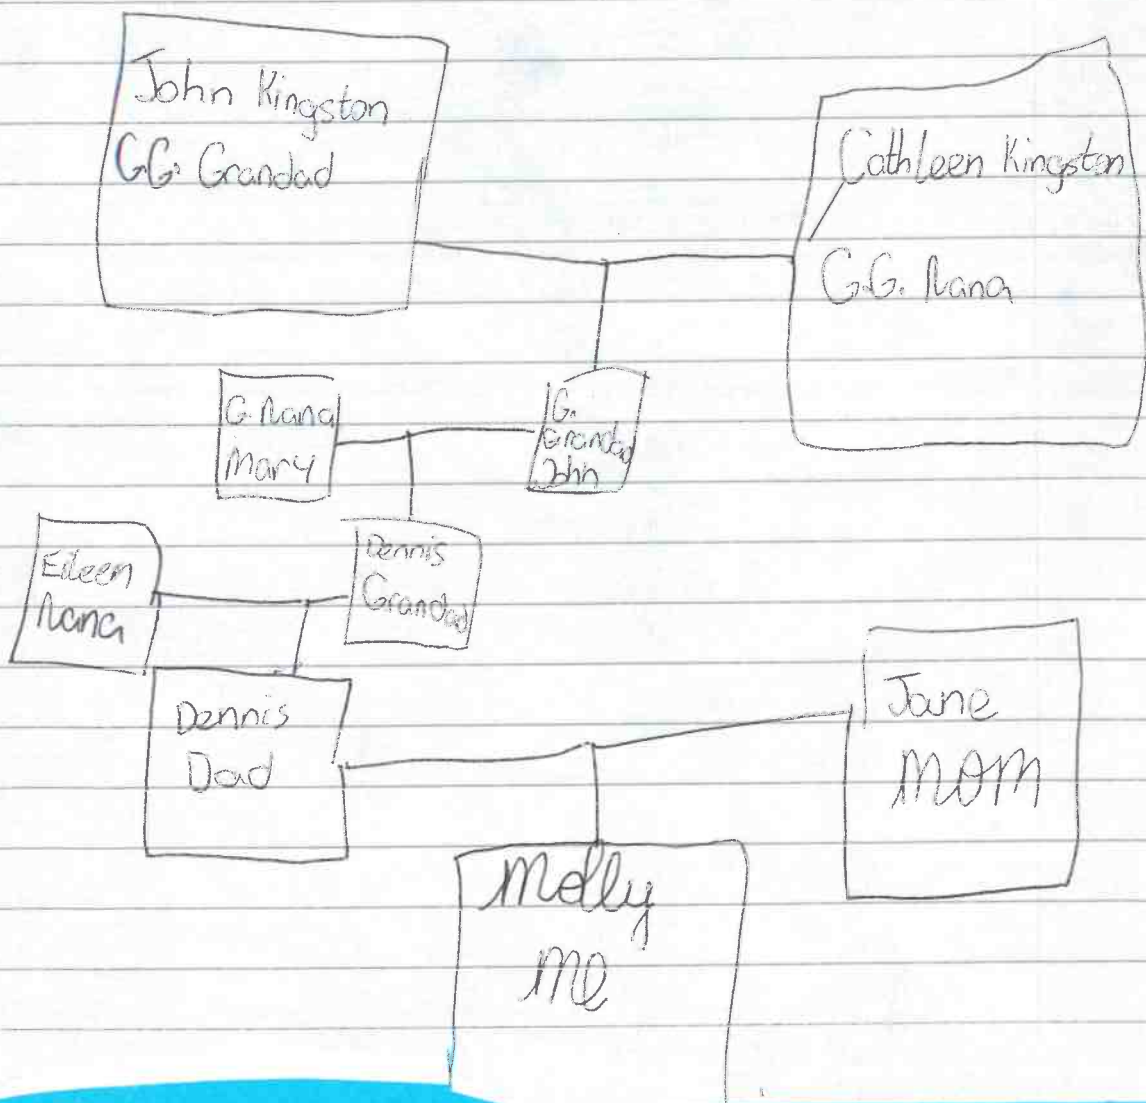 John Kingston
G.G. Grandad
Cathleen Kingston
G.G. Nana
G. Nana
Mary
G.
Grandad
John
Eileen
Nana
Dennis
Grandad
Dennis
Dad
Jane
MOM
Molly
Me